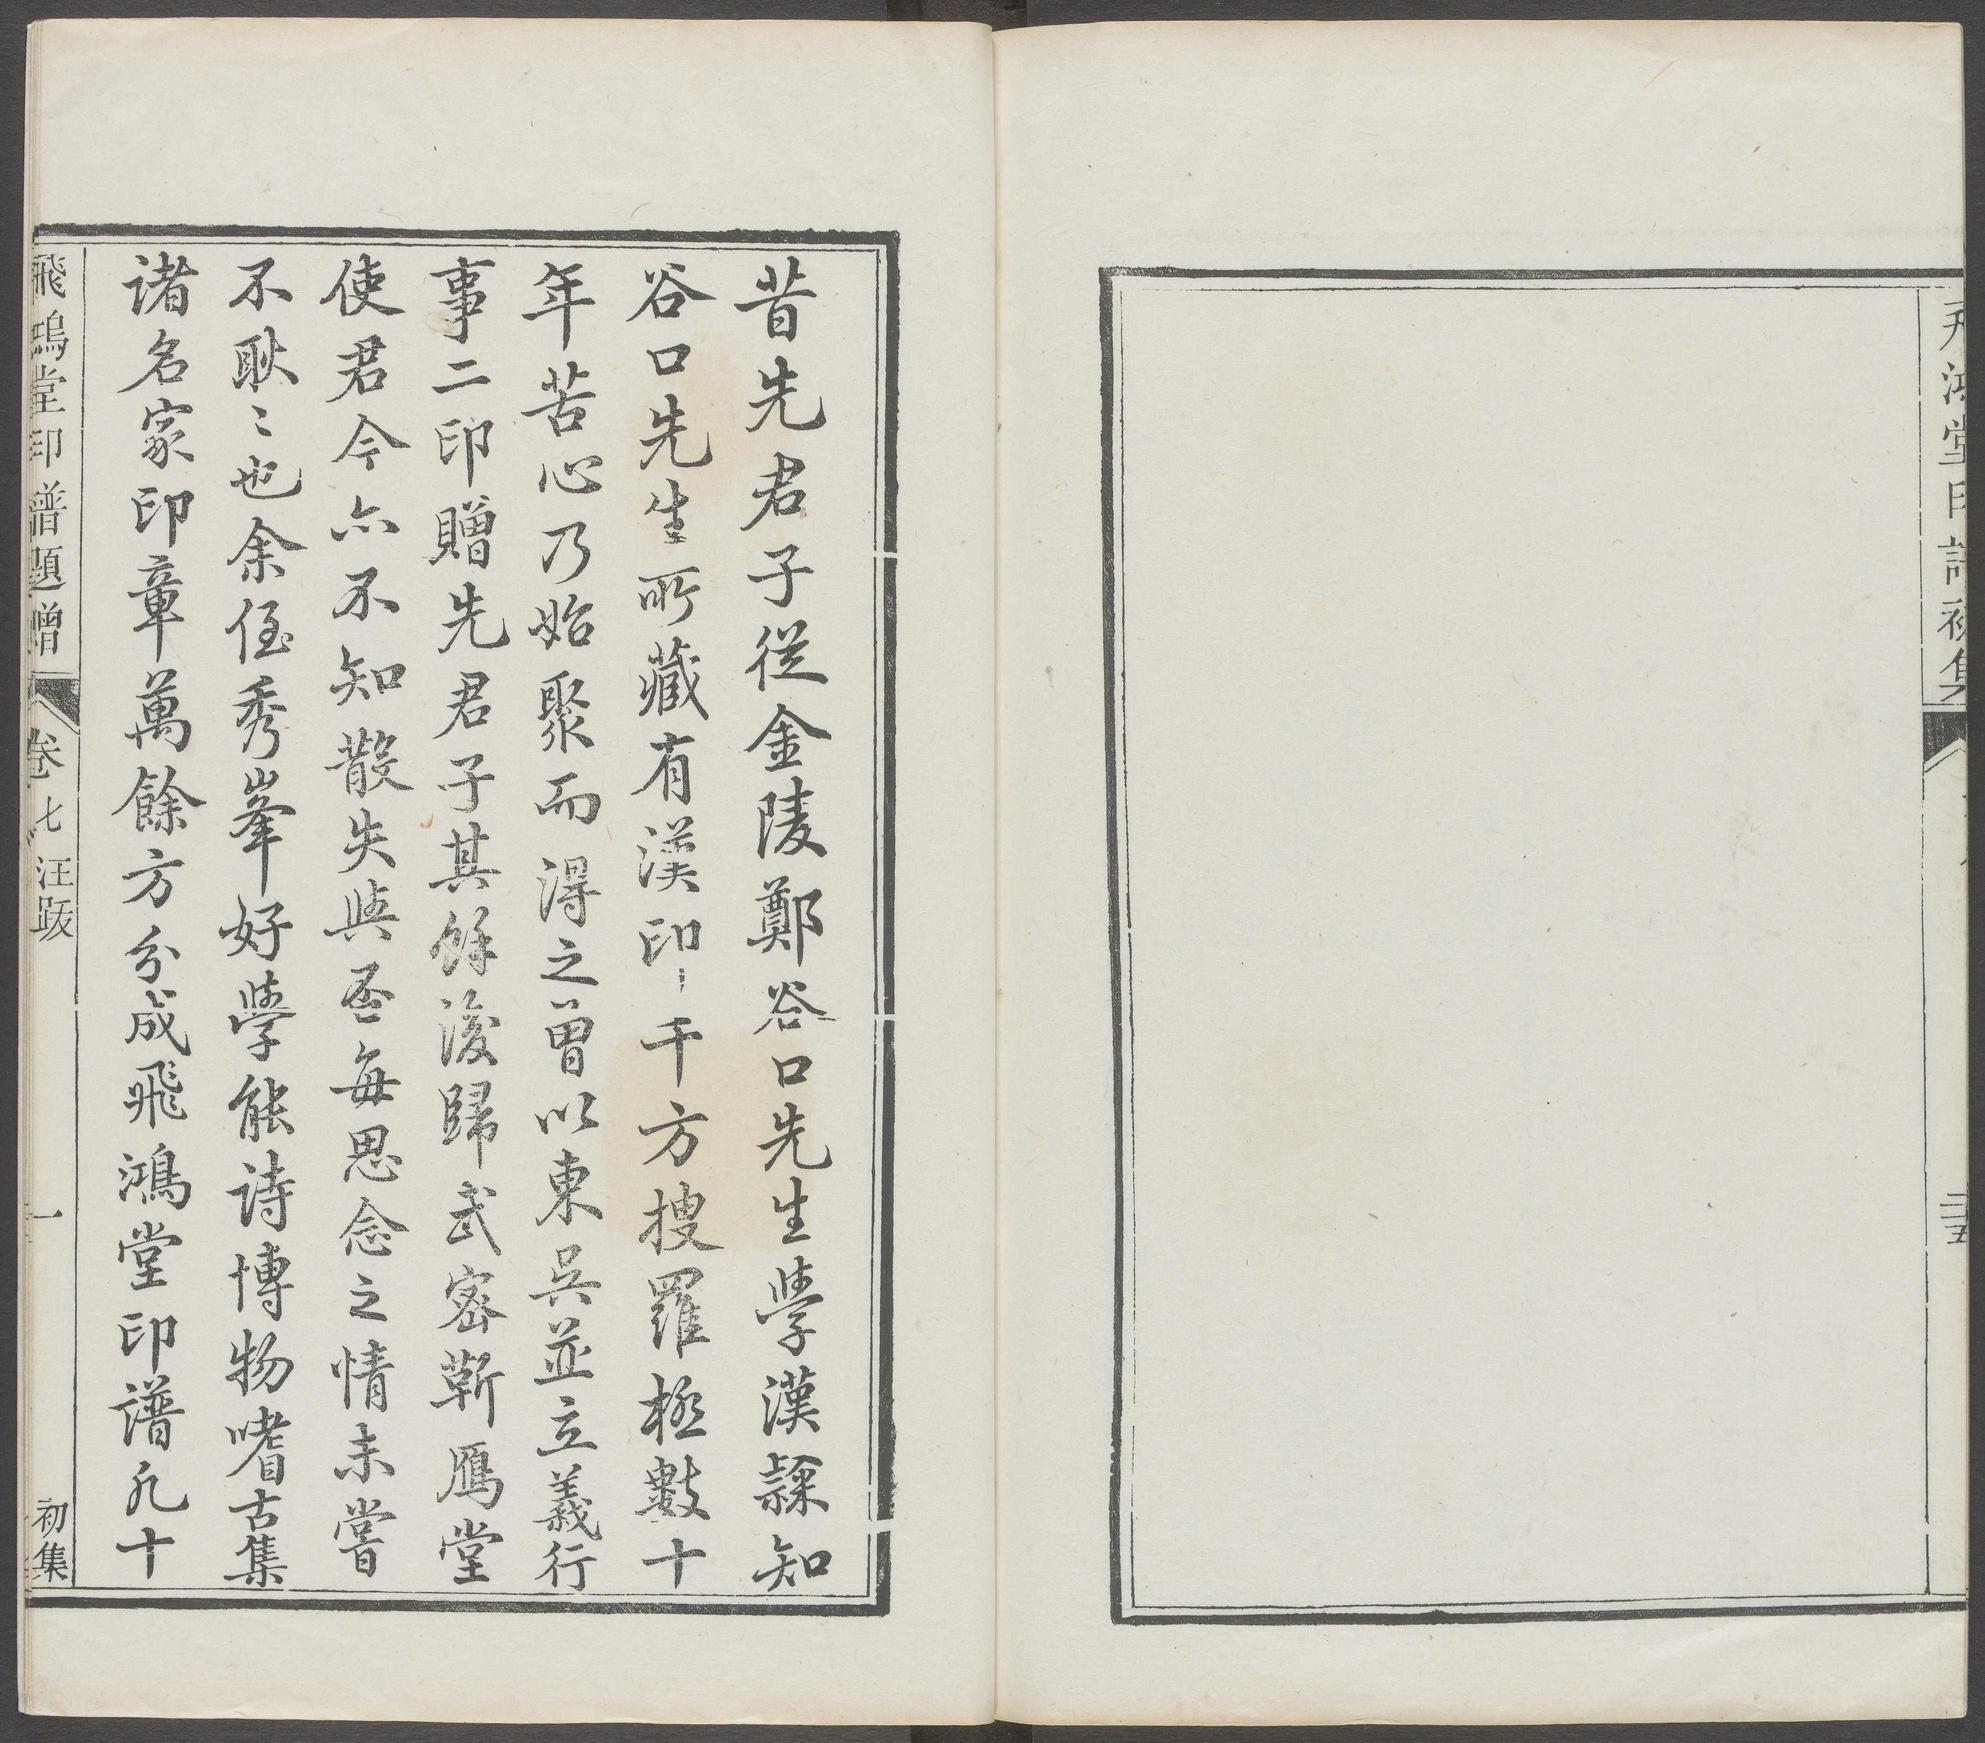 鴻堂印譜初集
二五
昔先君子從金陵鄭谷口先生學漢隸知
谷口先生所藏有漢印一千方搜羅極數十
年苦心乃始聚而得之曾以東吳並立義行
事二印贈先君子其餘後歸武密靳鴈堂
使君今亦不知散失與否每思念之情未嘗
不耿〻也余侄秀峯好學能詩博物嗜古集
诸名家印章萬餘方分成飛鴻堂印譜凡十
飛鴻堂印譜題贈
卷七 汪跋
一
初集